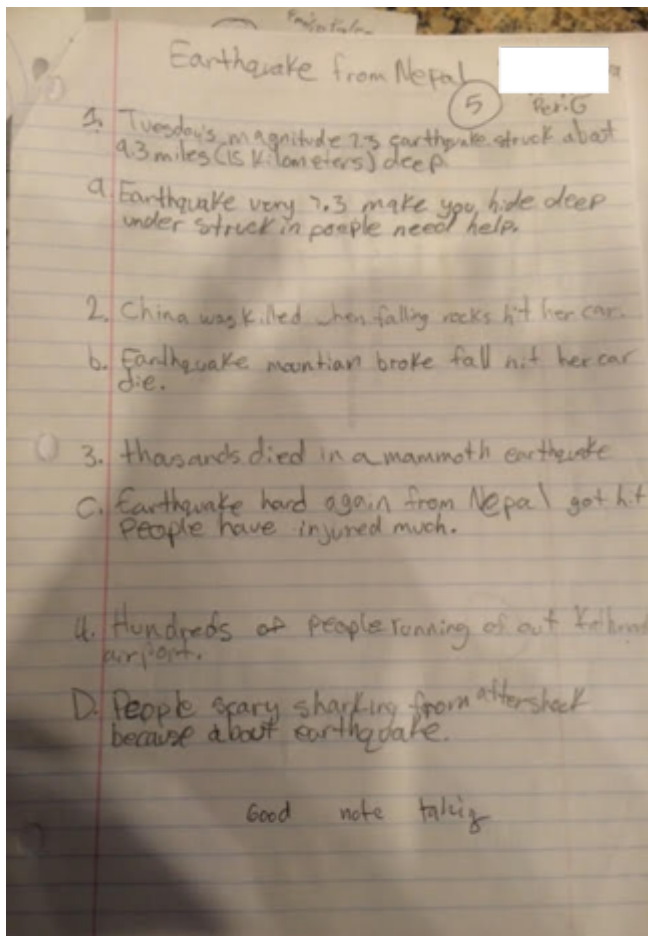 Earthquake from Nepal
5
Per.G
1. Tuesday's magnitude 7.3 earthquake struck about
9.3 miles (15 Kilometers) deep.
a. Earthquake very 7.3 make you hide deep
under struck in people need help.
2. China was killed when falling rocks hit her car.
b. Earthquake mountian broke fall hit her car
die.
3. thousands died in a mammoth earthquake
C. Earthquake hard again from Nepal got hit
People have injured much.
4. Hundreds of people running of out
airport.
D. People scary sharking from aftershock
because about earthquake.
Good note takig